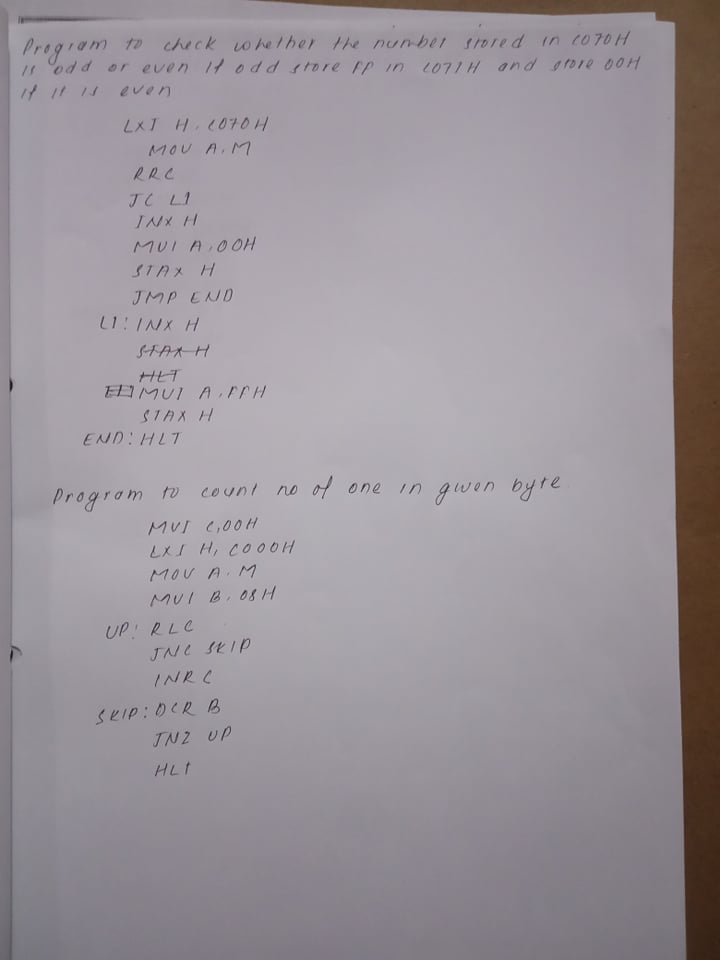 Program to check whether the number stored in C070H
is odd or even if odd store FF in C071H and store 00H
if it is even
LXI H, C070H
MOV A, M
RRC
JC L1
INX H
MVI A, 00H
STAX H
JMP END
L1: INX H
STAX H
HLT
MVI A, FFH
STAX H
END: HLT
Program to count no of one in given byte
MVI C, 00H
LXI H, C000H
MOV A, M
MVI B, 08H
UP: RLC
JNC SKIP
INR C
SKIP: DCR B
JNZ UP
HLT